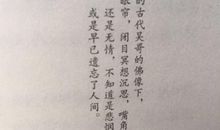 的古代吴哥的佛像下，
眼帘，闭目冥想沉思，嘴角
还是无情，不知道是悲悯
或是早已遗忘了人间。